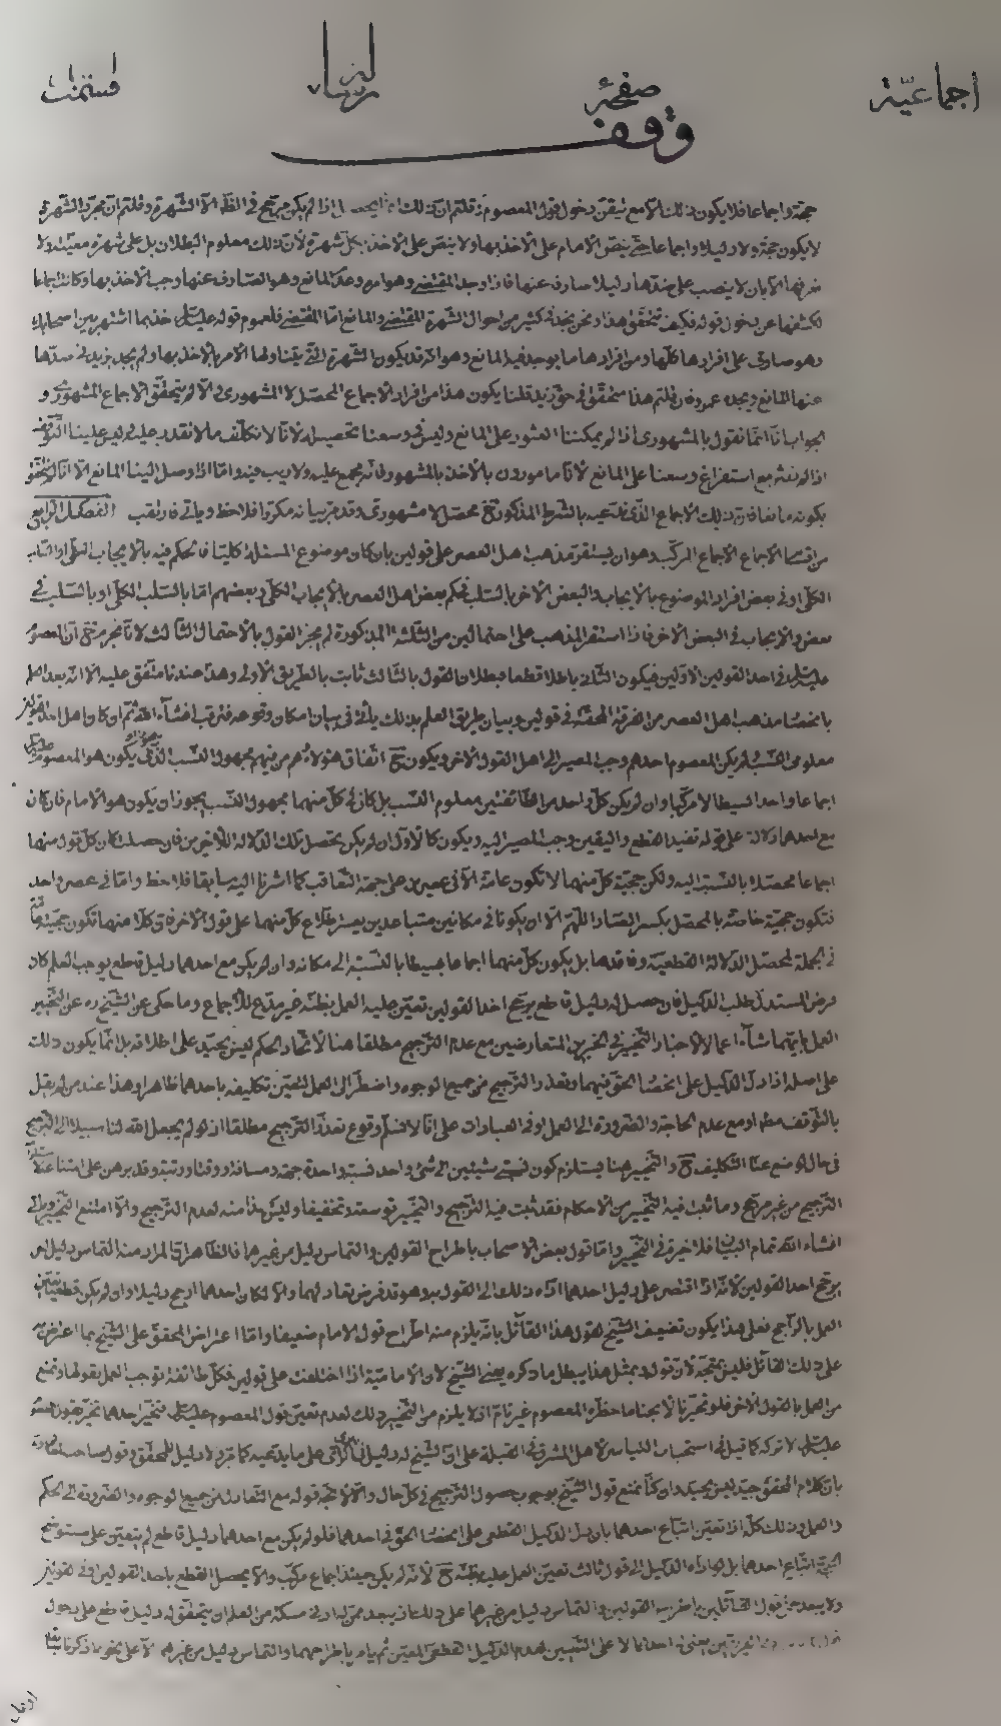 اجماعية
صفحة
وقف
حجة واجماعا فلا يكون ذلك الا مع تيقن دخول قول المعصوم قلتم ان ذلك اذا لم يكن مرجح في الظاهر الا الشهرة وقلتم ان مجرد الشهرة
لا يكون حجة ولا دليلا واجماعا حتى ينص الامام على الاخذ بها ولا ينص على الاخذ بكل شهرة لان ذلك معلوم البطلان بل على شهرة معينة ولا
الا بان لا ينصب على ضدها دليلا صارف عنها فاذا وجد المقتضى وهو امره وعدم المانع وهو الصارف عنها وجب الاخذ بها وكانت اجماعا
لكشفها عن دخول قوله فكيف يتحقق هذا ونحن نجد في كثير من احوال الشهرة المقتضى والمانع اما المقتضى فلعموم قوله خذ بما اشتهر بين اصحابك
وهو صادق على افرادها كلها ومن افرادها ما يوجد فيه المانع وهو انه قد يكون الشهرة التي يقينا ولها الامر بالاخذ بها ولم يجد زيد في ضدها
عنها المانع ويجده عمرو فان قلتم هذا متحقق في حق زيد قلنا يكون هذا من افراد الاجماع المحصل لا المشهوري والا لم يتحقق الاجماع المشهوري و
الجواب انا انما نقول بالمشهوري اذا لم يمكننا العثور على المانع وليس في وسعنا تحصيله لانا لا نكلف ما لا نقدر عليه وليس علينا
اذا لم نعثر مع استفراغ وسعنا على المانع لانا مامورون بالاخذ بالمشهور لانه مجمع عليه ولا ريب فيه واما اذا وصل الينا المانع الا انا لم نتحقق
بكونه مانعا فان ذلك الاجماع الذي ندعيه بالشرط المذكور ح محصل لا مشهوري وقد مر بيانه مكررا فلاحظ وياتي فارتقب الفصل الرابع
من اقسام الاجماع الاجماع المركب وهو ان يستقر مذهب اهل العصر على قولين بان كان موضوع المسئلة كليا فالحكم فيه بالايجاب الكلي او السلب
الكلي او في بعض افراد الموضوع بالايجاب والبعض الاخر بالسلب فيحكم بعض اهل العصر بالايجاب الكلي وبعضهم اما بالسلب الكلي او بالسلب في
بعض والايجاب في البعض الاخر فاذا استقر المذهب على احتمالين من الثلثة المذكورة لم يجز القول بالاحتمال الثالث لانا نجزم ح ان المعصوم
في احد القولين الاولين فيكون الثاني باطلا قطعا فبطلان القول بالثالث ثابت بالطريق الاولى وهذا عندنا متفق عليه الا انه بعد العلم
بانحصار مذهب اهل العصر من الفرقة المحقة في قولين وبيان طريق العلم بذلك ياتي في بيان امكان وقوعه فترقب انشاء الله ثم ان كان اهل احد القولين
معلومي النسب ولم يكن المعصوم احدهم وجب المصير الى اهل القول الاخر ويكون ح اتفاق هؤلاء هم من فيهم مجهول النسب الذي يكون هو المعصوم
اجماعا واحدا بسيطا لا مركبا وان لم يكن كل واحد من الطائفتين معلوم النسب بل كان في كل منهما مجهول النسب يجوز ان يكون هو الامام فان كان
مع احدهما دلالة على قوله تفيد القطع واليقين وجب المصير اليه ويكون كالاول وان لم يكن يحصل تلك الدلالة للاخرين فان حصلت كان كل قول منهما
اجماعا محصلا بالنسبة اليه ولكن حجية كل منهما لا تكون عامة الا في عصرين على جهة التعاقب كما اشرنا اليه سابقا فلاحظ واما في عصر واحد
فتكون حجية خاصة بالمحصل بكسر الصاد اللهم الا ان يكونا في مكانين متباعدين يعسر اطلاع كل منهما على قول الاخر فان كلا منهما تكون حجيته
في الجملة لمحصل الدلالة القطعية وفاقدها بل يكون كل منهما اجماعا بسيطا بالنسبة الى مكانه وان لم يكن مع احدهما دليل قاطع يوجب العلم كان
فرض المستدل طلب الدليل فان حصل له دليل قاطع يرجح احد القولين تعين عليه العمل بظنه غير مدع للاجماع وما حكى عن الشيخ ره عن التخيير
العمل بايهما شاء اعمالا لاخبار التخيير في الخبرين المتعارضين مع عدم الترجيح مطلقا هنا لاتحاد الحكم ليس بجيد على اطلاقه بل انما يكون ذلك
على اصله اذا دل الدليل على انحصار الحق فيهما وتعذر الترجيح من جميع الوجوه واضطر الى العمل لتعين تكليفه باحدهما ظاهرا وهذا عند من لم يقل
بالتوقف مطلقا او مع عدم الحاجة والضرورة الى العمل او في العبادات على انا لا نسلم وقوع تعذر الترجيح مطلقا اذ لو لم يجعل الله لنا سبيلا الى الترجيح
في حال لوضع عنا التكليف ح والتخيير هنا يستلزم كون نسبتي شيئين الى شئ واحد نسبة واحدة جهة ومسافة ووقتا ورتبة وقد برهن على امتناع
الترجيح من غير مرجح وما ثبت فيه التخيير من الاحكام فقد ثبت فيه الترجيح والتخيير توسعة وتخفيفا وليس هذا منه لعدم الترجيح والا امتنع التخيير وياتي
انشاء الله تمام البيان فلا خيرة في التخيير واما قول بعض الاصحاب باطراح القولين والتماس دليل من غيرهما فالظاهر ان المراد منه التماس دليل اخر
يرجح احد القولين لانه اذا اقتصر على دليل احدهما اداه ذلك الى القول به وهو قد فرض تعادلهما والا لكان احدهما ارجح دليلا وان لم يكن قطعيا
العمل بالراجح فعلى هذا يكون تضعيف الشيخ لقول هذا القائل بانه يلزم منه اطراح قول الامام ضعيفا واما اعتراض المحقق على الشيخ بما اعترض به
على ذلك القائل فليس بمتجه لان قوله وبمثل هذا يبطل ما ذكره يعني الشيخ لان الامامية اذا اختلفت على قولين فكل طائفة توجب العمل بقولها وتمنع
من العمل بالقول الاخر فلو تخيرنا لابحنا ما حظره المعصوم غير تام اذ لا يلزم من التخيير ذلك لعدم تعين قول المعصوم
لا تركه كما قيل في استحباب التياسر لاهل المشرق في القبلة على ان الشيخ له دليل على ما يدعيه كما مر ولا دليل للمحقق وقول صاحب
بان كلام المحقق جيد ليس بجيد وان كنا نمنع قول الشيخ بوجوب حصول الترجيح في كل حال والا لاتجه قوله مع التعادل من جميع الوجوه والضرورة الى الحكم
والعمل وذلك كله اذا تعين اتباع احدهما بان دل الدليل القطعي على انحصار الحق في احدهما فلو لم يكن مع احدهما دليل قاطع لم يتعين على مستوضح
اتباع احدهما بل لو اداه الدليل الى قول ثالث تعين العمل عليه بظنه ح لانه لم يكن حينئذ اجماع مركب والا يحصل القطع باحد القولين او في القولين
ولا يبعد قول القائلين باطراح القولين والتماس دليل من غيرهما على ذلك اذ يبعد ممن له ادنى مسكة من العلم ان يتحقق له دليل قاطع على دخول
الفريقين يعني في احدهما لا على التعيين لعدم الدليل القطعي المعين ثم يامر باطراحهما والتماس دليل من غيرهما الا على نحو ما ذكرنا